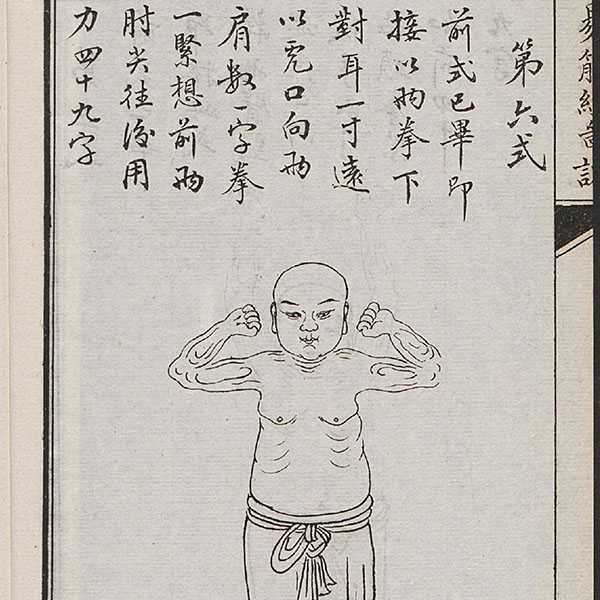 易筋經啚說
第六式
前式已畢即
接以兩拳下
對耳一寸遠
以虎口向兩
肩數一字拳
一緊想前兩
肘尖往後用
力四十九字